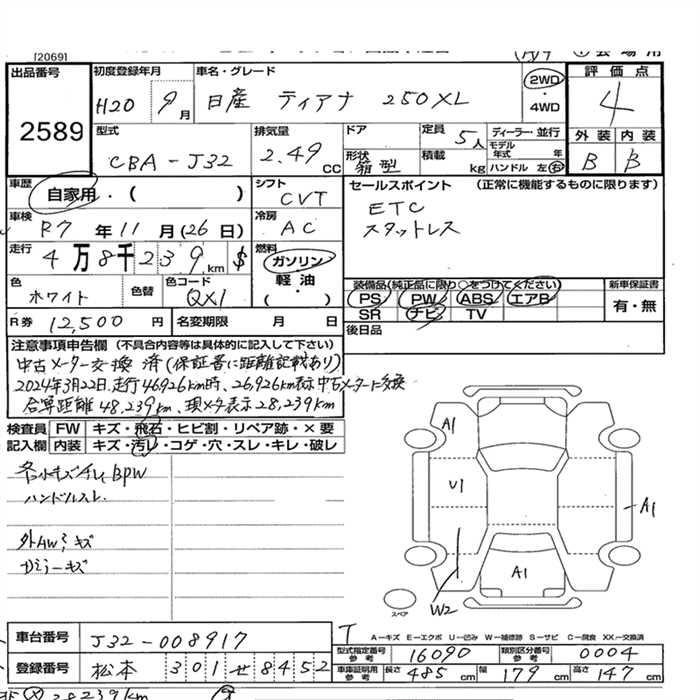 [2069]
出品番号
2589
初度登録年月
H20 9月
車名・グレード
日産 ティアナ 250XL
2WD
・
4WD
評価点
4
外装 内装
B B
型式
CBA-J32
排気量
2.49 CC
ドア
形状
箱型
定員 5人
積載 kg
ディーラー・並行
モデル年式 年
ハンドル 左・右
車歴
自家用・( )
シフト
CVT
セールスポイント (正常に機能するものに限ります)
ETC
スタットレス
車検
R7年11月(26日)
冷房
AC
走行
4万8千239km $
燃料
ガソリン
軽油・
( )
色
ホワイト
色替
色コード
QX1
装備品(純正品に限り○をつけてください)
PS PW ABS エアB
SR ナビ TV
新車保証書
有・無
R券 12,500円
名変期限 月 日
後日品
注意事項申告欄(不具合内容等は具体的に記入して下さい)
中古メーター交換済(保証書に距離記載あり)
2024年3月22日,走行46926km時、26,926km表示中古メーターに交換
合算距離48,239km、現メーター表示28,239km
検査員記入欄
FW キズ・飛石・ヒビ割・リペア跡・×要
内装 キズ・汚レ・コゲ・穴・スレ・キレ・破レ
各小キズ BPW
ハンドルスレ
外AWキズ
ガミラーキズ
A1
U1
A1
A1
W2
スペア
T
A―キズ E―エクボ U―凹み W―補修跡 S―サビ C―腐食 XX―交換済
車台番号
J32-008917
登録番号
松本 301 せ 8452
型式指定番号 参考
16090
類別区分番号 参考
0004
車庫証明用 参考
長さ 485cm
幅 179cm
高さ 147cm
28239km